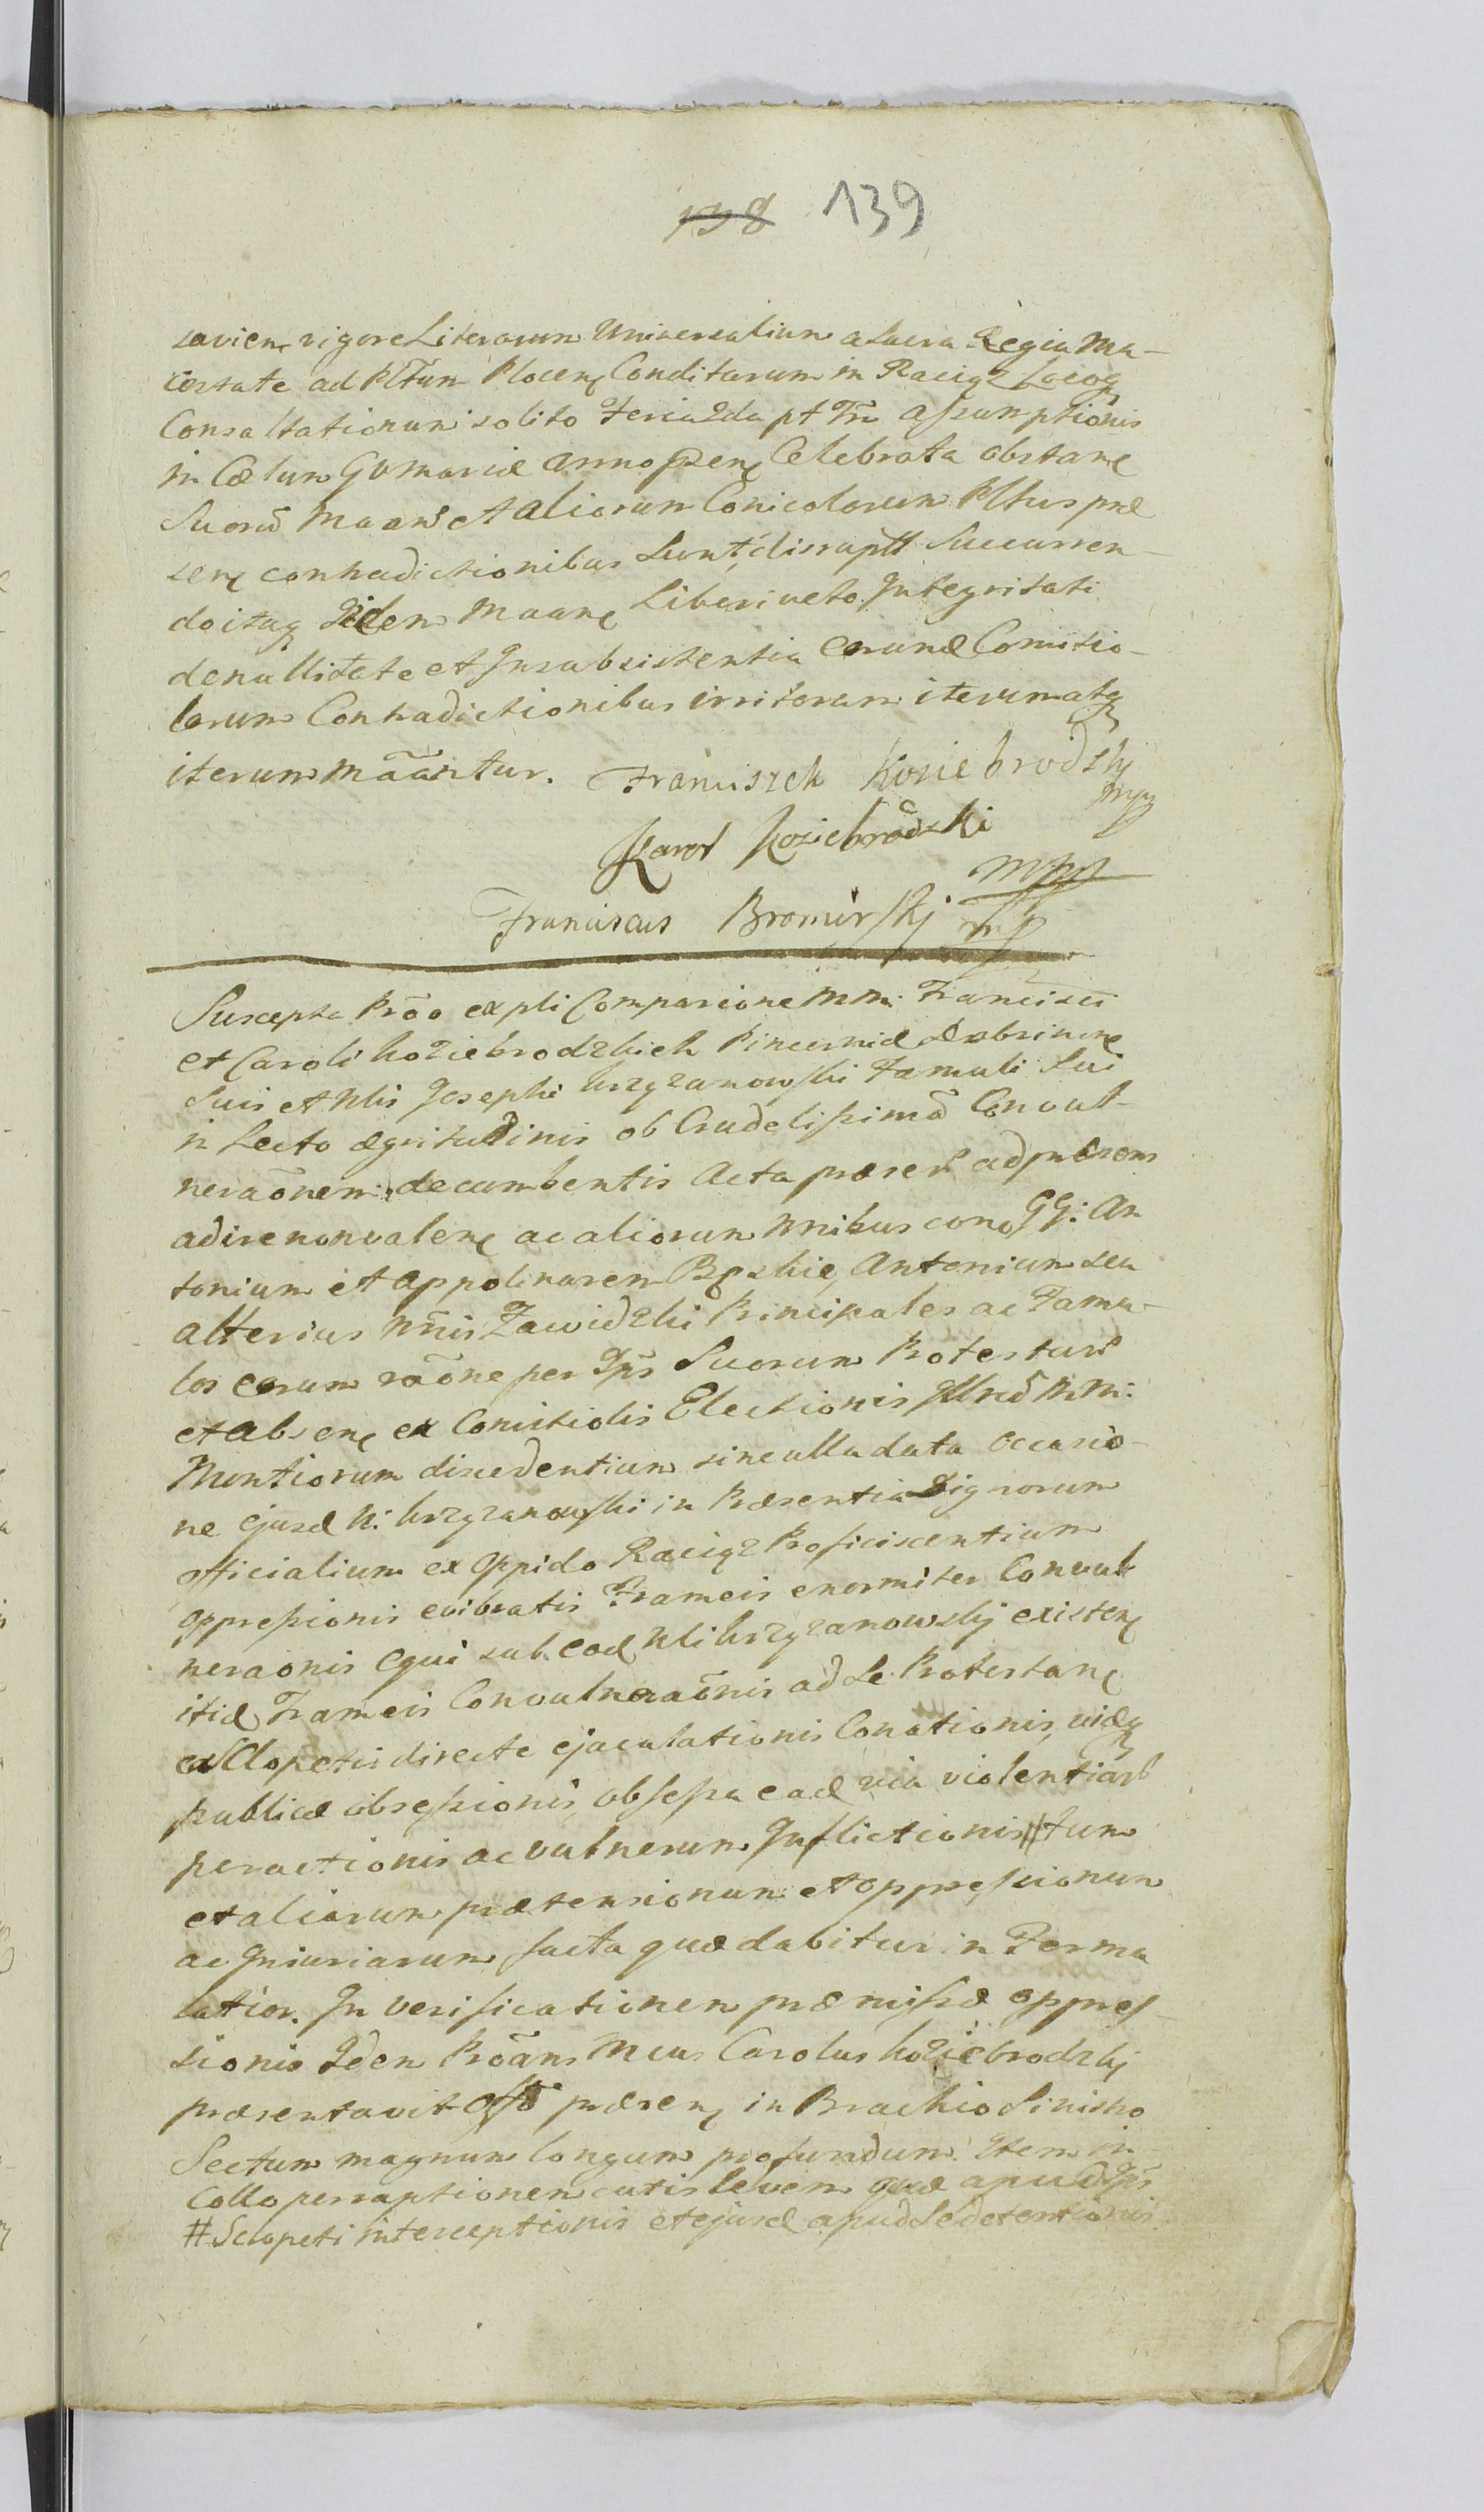 138 139
savien vigore Literarum Universalium a Sacra Regia Ma-
iestate ad Pltum Plocen Conditarum in Raciąz Locoq
Consultationum solito Feria 2da pt Fm Assumptionis
in Cœlum GVMariæ anno præsen Celebrata obstane
Suorũ Maanr et aliorum Conicolorum Pltus præ
sen contradictionibus Sunt disrupti Succurren-
do itaq Iidem Maane Liberi veto Integritati
de nullitate et Insubsistentia Eorund Comitio-
lorum Contradictionibus irritorum iterum atq
iterum mãantur. Franciszek Koziebrodzkj
mpp
Karol Koziebrodzki
mpp
Franciscus Bromirskj mp
Suscepta Prõo ex pli Comparicione MM: Francisci
et Caroli Koziebrodzkich Pincernid Dobrinen
Suis et Nlis Josephi Krzyzanowski Famuli Sui
in Lecto ægritudinis ob Crudelissimã Convul-
nerãonem decumbentis Acta præsen ad præsens
adire non valen ac aliorum Nnibus con GG: An
tonium et Appolinarem Ręskie, Antonium seu
alterius Nñis Zawidzki Principales ac Famu-
los eorum rãone per Ips Suorum Protestan
et absen ex Comitiolis Electionis Illrũ MM:
Nuntiorum discedentium sine ulla data occasio-
ne ejusd N: Krzyzanowski in Præsentia Dignorum
officialium ex oppido Raciąz Proficiscentium
oppressionis evibratis Frameis enormiter Convul
neraonis Equi sub eod Nli Krzyzanowskj existen
itid Frameis Convulnerãonis ad Se Protestan
ex Sclopetis directe ejaculationis Conationis, viæq
publicæ obsessionis, obsessa ead via violentiarũ
peractionis ac vulnerum Inflictionis # tum
et aliarum prætensionum et oppressionum
ac Iniuriarum facta quæ dabitur in Forma
latior. In verificationem præmissæ oppres-
sionis Idem Proãns Mcus Carolus Koziebrodzkj
præsentavit Offo præsen in Brachio Sinistro
Sectum magnum longum profundum. Item in
Collo perraptionem cutis levem quæ apud Ips
# Sclopeti interceptionis et ejusd apud Se detentionis